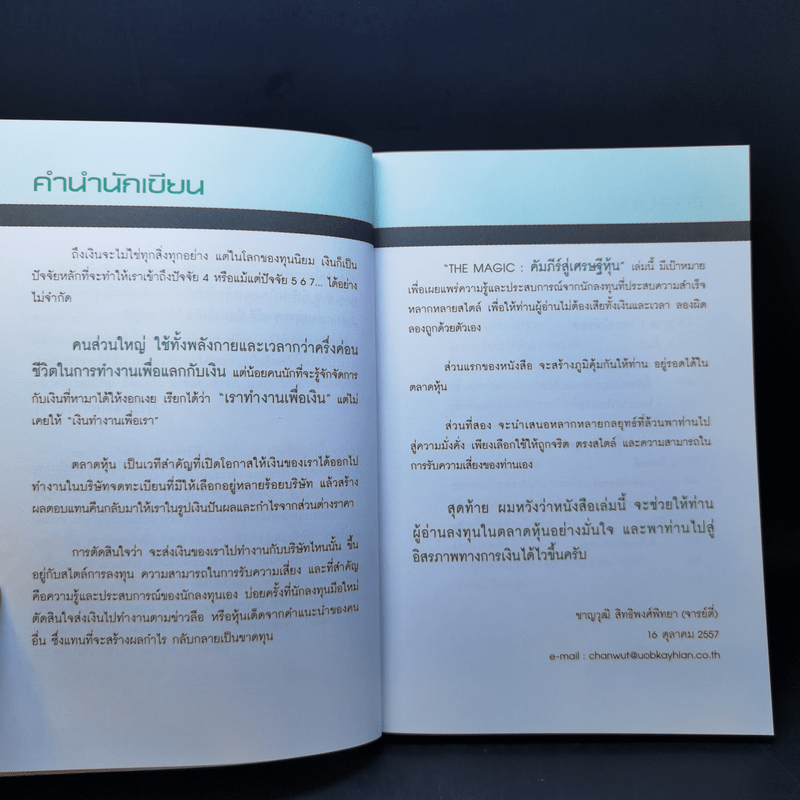 คำนำนักเขียน
ถึงเงินจะไม่ใช่ทุกสิ่งทุกอย่าง แต่ในโลกของทุนนิยม เงินก็เป็น
ปัจจัยหลักที่จะทำให้เราเข้าถึงปัจจัย 4 หรือแม้แต่ปัจจัย 5 6 7... ได้อย่าง
ไม่จำกัด
คนส่วนใหญ่ ใช้ทั้งพลังกายและเวลากว่าครึ่งค่อน
ชีวิตในการทำงานเพื่อแลกกับเงิน แต่น้อยคนนักที่จะรู้จักจัดการ
กับเงินที่หามาได้ให้งอกเงย เรียกได้ว่า “เราทำงานเพื่อเงิน” แต่ไม่
เคยให้ “เงินทำงานเพื่อเรา”
ตลาดหุ้น เป็นเวทีสำคัญที่เปิดโอกาสให้เงินของเราได้ออกไป
ทำงานในบริษัทจดทะเบียนที่มีให้เลือกอยู่หลายร้อยบริษัท แล้วสร้าง
ผลตอบแทนคืนกลับมาให้เราในรูปเงินปันผลและกำไรจากส่วนต่างราคา
การตัดสินใจว่า จะส่งเงินของเราไปทำงานกับบริษัทไหนนั้น ขึ้น
อยู่กับสไตล์การลงทุน ความสามารถในการรับความเสี่ยง และที่สำคัญ
คือความรู้และประสบการณ์ของนักลงทุนเอง บ่อยครั้งที่นักลงทุนมือใหม่
ตัดสินใจส่งเงินไปทำงานตามข่าวลือ หรือหุ้นเด็ดจากคำแนะนำของคน
อื่น ซึ่งแทนที่จะสร้างผลกำไร กลับกลายเป็นขาดทุน
“THE MAGIC : คัมภีร์สู่เศรษฐีหุ้น” เล่มนี้ มีเป้าหมาย
เพื่อเผยแพร่ความรู้และประสบการณ์จากนักลงทุนที่ประสบความสำเร็จ
หลากหลายสไตล์ เพื่อให้ท่านผู้อ่านไม่ต้องเสียทั้งเงินและเวลา ลองผิด
ลองถูกด้วยตัวเอง
ส่วนแรกของหนังสือ จะสร้างภูมิคุ้มกันให้ท่าน อยู่รอดได้ใน
ตลาดหุ้น
ส่วนที่สอง จะนำเสนอหลากหลายกลยุทธ์ที่ล้วนพาท่านไป
สู่ความมั่งคั่ง เพียงเลือกใช้ให้ถูกจริต ตรงสไตล์ และความสามารถใน
การรับความเสี่ยงของท่านเอง
สุดท้าย ผมหวังว่าหนังสือเล่มนี้ จะช่วยให้ท่าน
ผู้อ่านลงทุนในตลาดหุ้นอย่างมั่นใจ และพาท่านไปสู่
อิสรภาพทางการเงินได้ไวขึ้นครับ
ชาญวุฒิ สิทธิพงศ์พิทยา (จารย์ตี่)
16 ตุลาคม 2557
e-mail : chanwut@uobkayhian.co.th